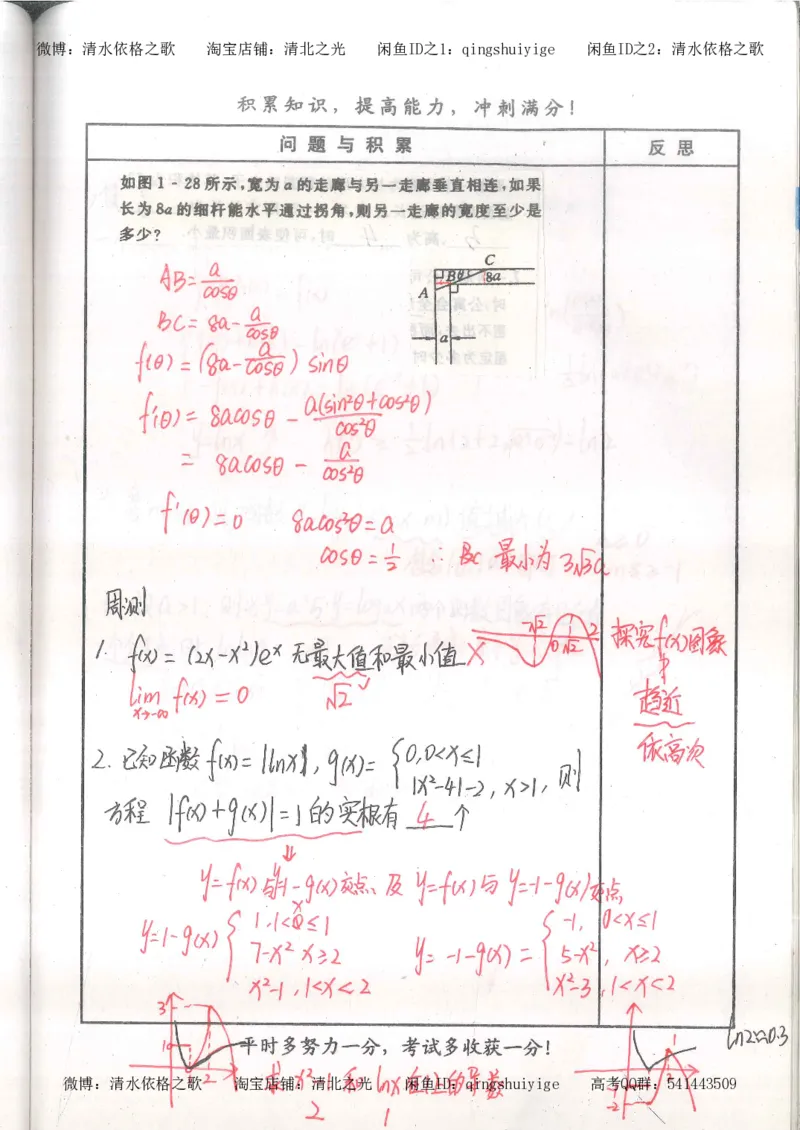 微博：清水依格之歌 淘宝店铺：清北之光 闲鱼ID之1：qingshuiyige 闲鱼ID之2：清水依格之歌
积累知识，提高能力，冲刺满分！
问题与积累 反思
如图1－28所示,宽为a的走廊与另一走廊垂直相连,如果
长为8a的细杆能水平通过拐角,则另一走廊的宽度至少是
多少?
C
B θ 8a
A
a
AB=a/cosθ
BC=8a-a/cosθ
f(θ)=(8a-a/cosθ)sinθ
f'(θ)=8acosθ-a(sin²θ+cos²θ)/cos²θ
=8acosθ-a/cos²θ
f'(θ)=0 8acos³θ=a
cosθ=1/2 ∴BC最小为3√3a
周测
1. f(x)=(2x-x²)eˣ无最大值和最小值 ×
-√2 0 √2 2
探究f(x)图象
lim f(x)=0 √2 ✓
x→-∞
趋近
依高次
2. 已知函数f(x)=|lnx|, g(x)={0,0<x≤1
|x²-4|-2, x>1, 则
方程|f(x)+g(x)|=1的实根有 4 个
y=f(x)与y=1-g(x)交点、及y=f(x)与y=-1-g(x)交点
y=1-g(x){1, 1<x≤1
7-x² x≥2
x²-1, 1<x<2
y=-1-g(x)={-1, 0<x≤1
5-x², x≥2
x²-3, 1<x<2
3
1
2
1
2
-2
ln2≈0.3
平时多努力一分，考试多收获一分！
微博：清水依格之歌 淘宝店铺：清北之光 闲鱼ID：qingshuiyige 高考QQ群：541443509
求x²-1和lnx在1的导数
2 1